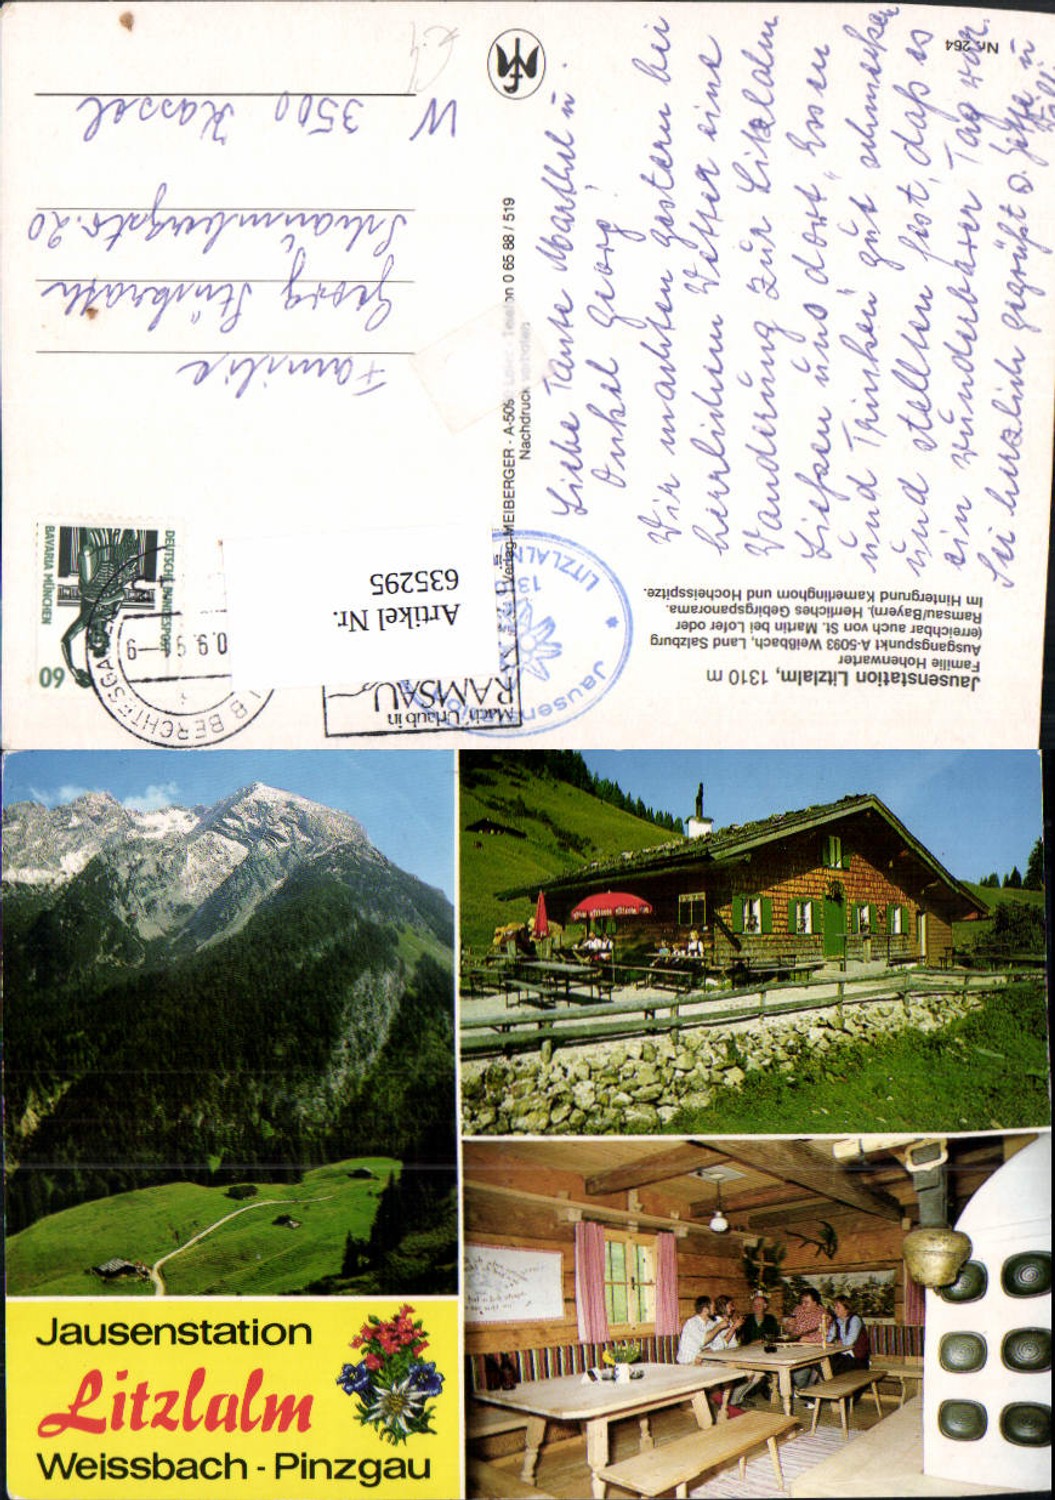 Nr. 264
Liebe Tante Marthel u.
Onkel Georg!
Wir machten gestern bei
herrlichem Wetter eine
Wanderung zur Litzlalm
Ließen uns dort Essen
und Trinken gut schmecken
und stellten fest, daß es
ein wunderbarer Tag war.
Sei herzlich gegrüßt v.
Familie
Georg
Schaumbergstr. 20
W 3500 Kassel
Jausenstation Litzlalm, 1310 m
Familie Hohenwarter
Ausgangspunkt A-5093 Weißbach, Land Salzburg
(erreichbar auch von St. Martin bei Lofer oder
Ramsau/Bayern). Herrliches Gebirgspanorama.
Im Hintergrund Kamerlinghorn und Hocheisspitze.
Verlag MEIBERGER · A-509 Telefon 0 65 88 / 519
Nachdruck verboten
DEUTSCHE BUNDESPOST
60
BAVARIA MÜNCHEN
BERCHTESGADEN
Mach' Urlaub in
RAMSAU
Jausenstation
LITZLALM
Artikel Nr.
635295
Jausenstation
Litzlalm
Weissbach - Pinzgau